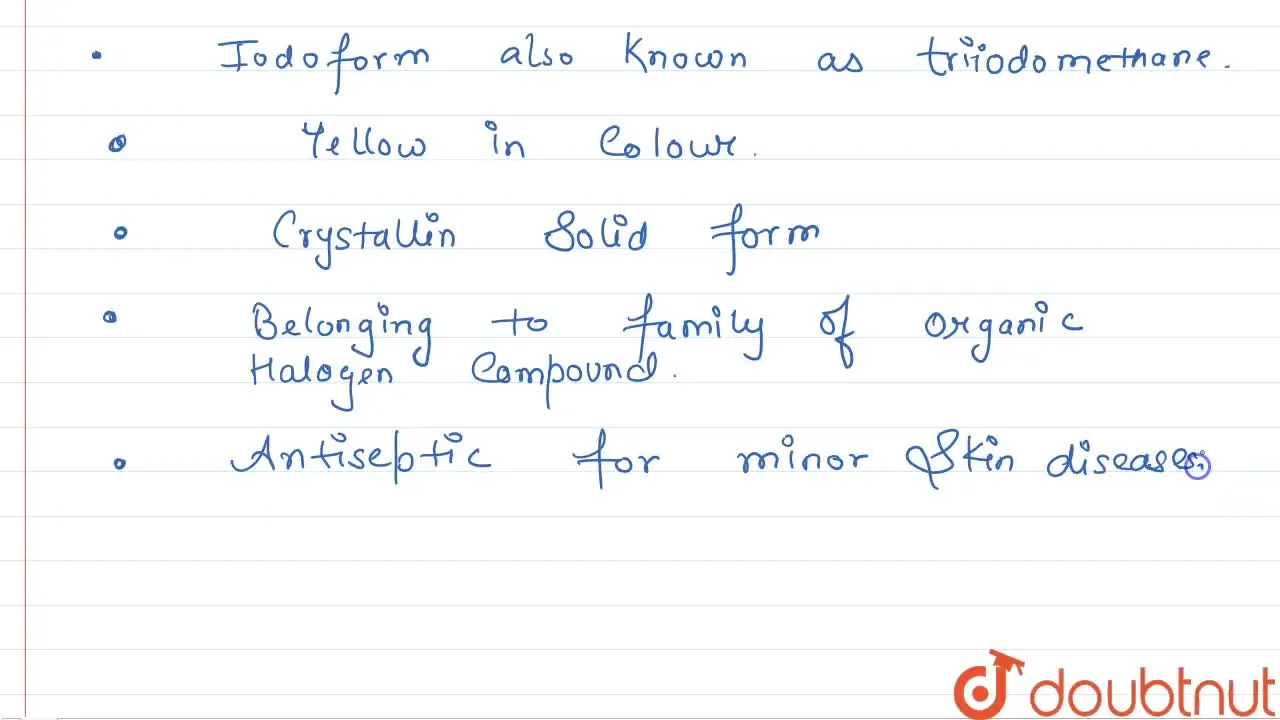 • Iodoform also known as triiodomethane.
• Yellow in Colour.
• Crystallin Solid form
• Belonging to family of organic
Halogen Compound.
• Antiseptic for minor Skin diseases.
doubtnut